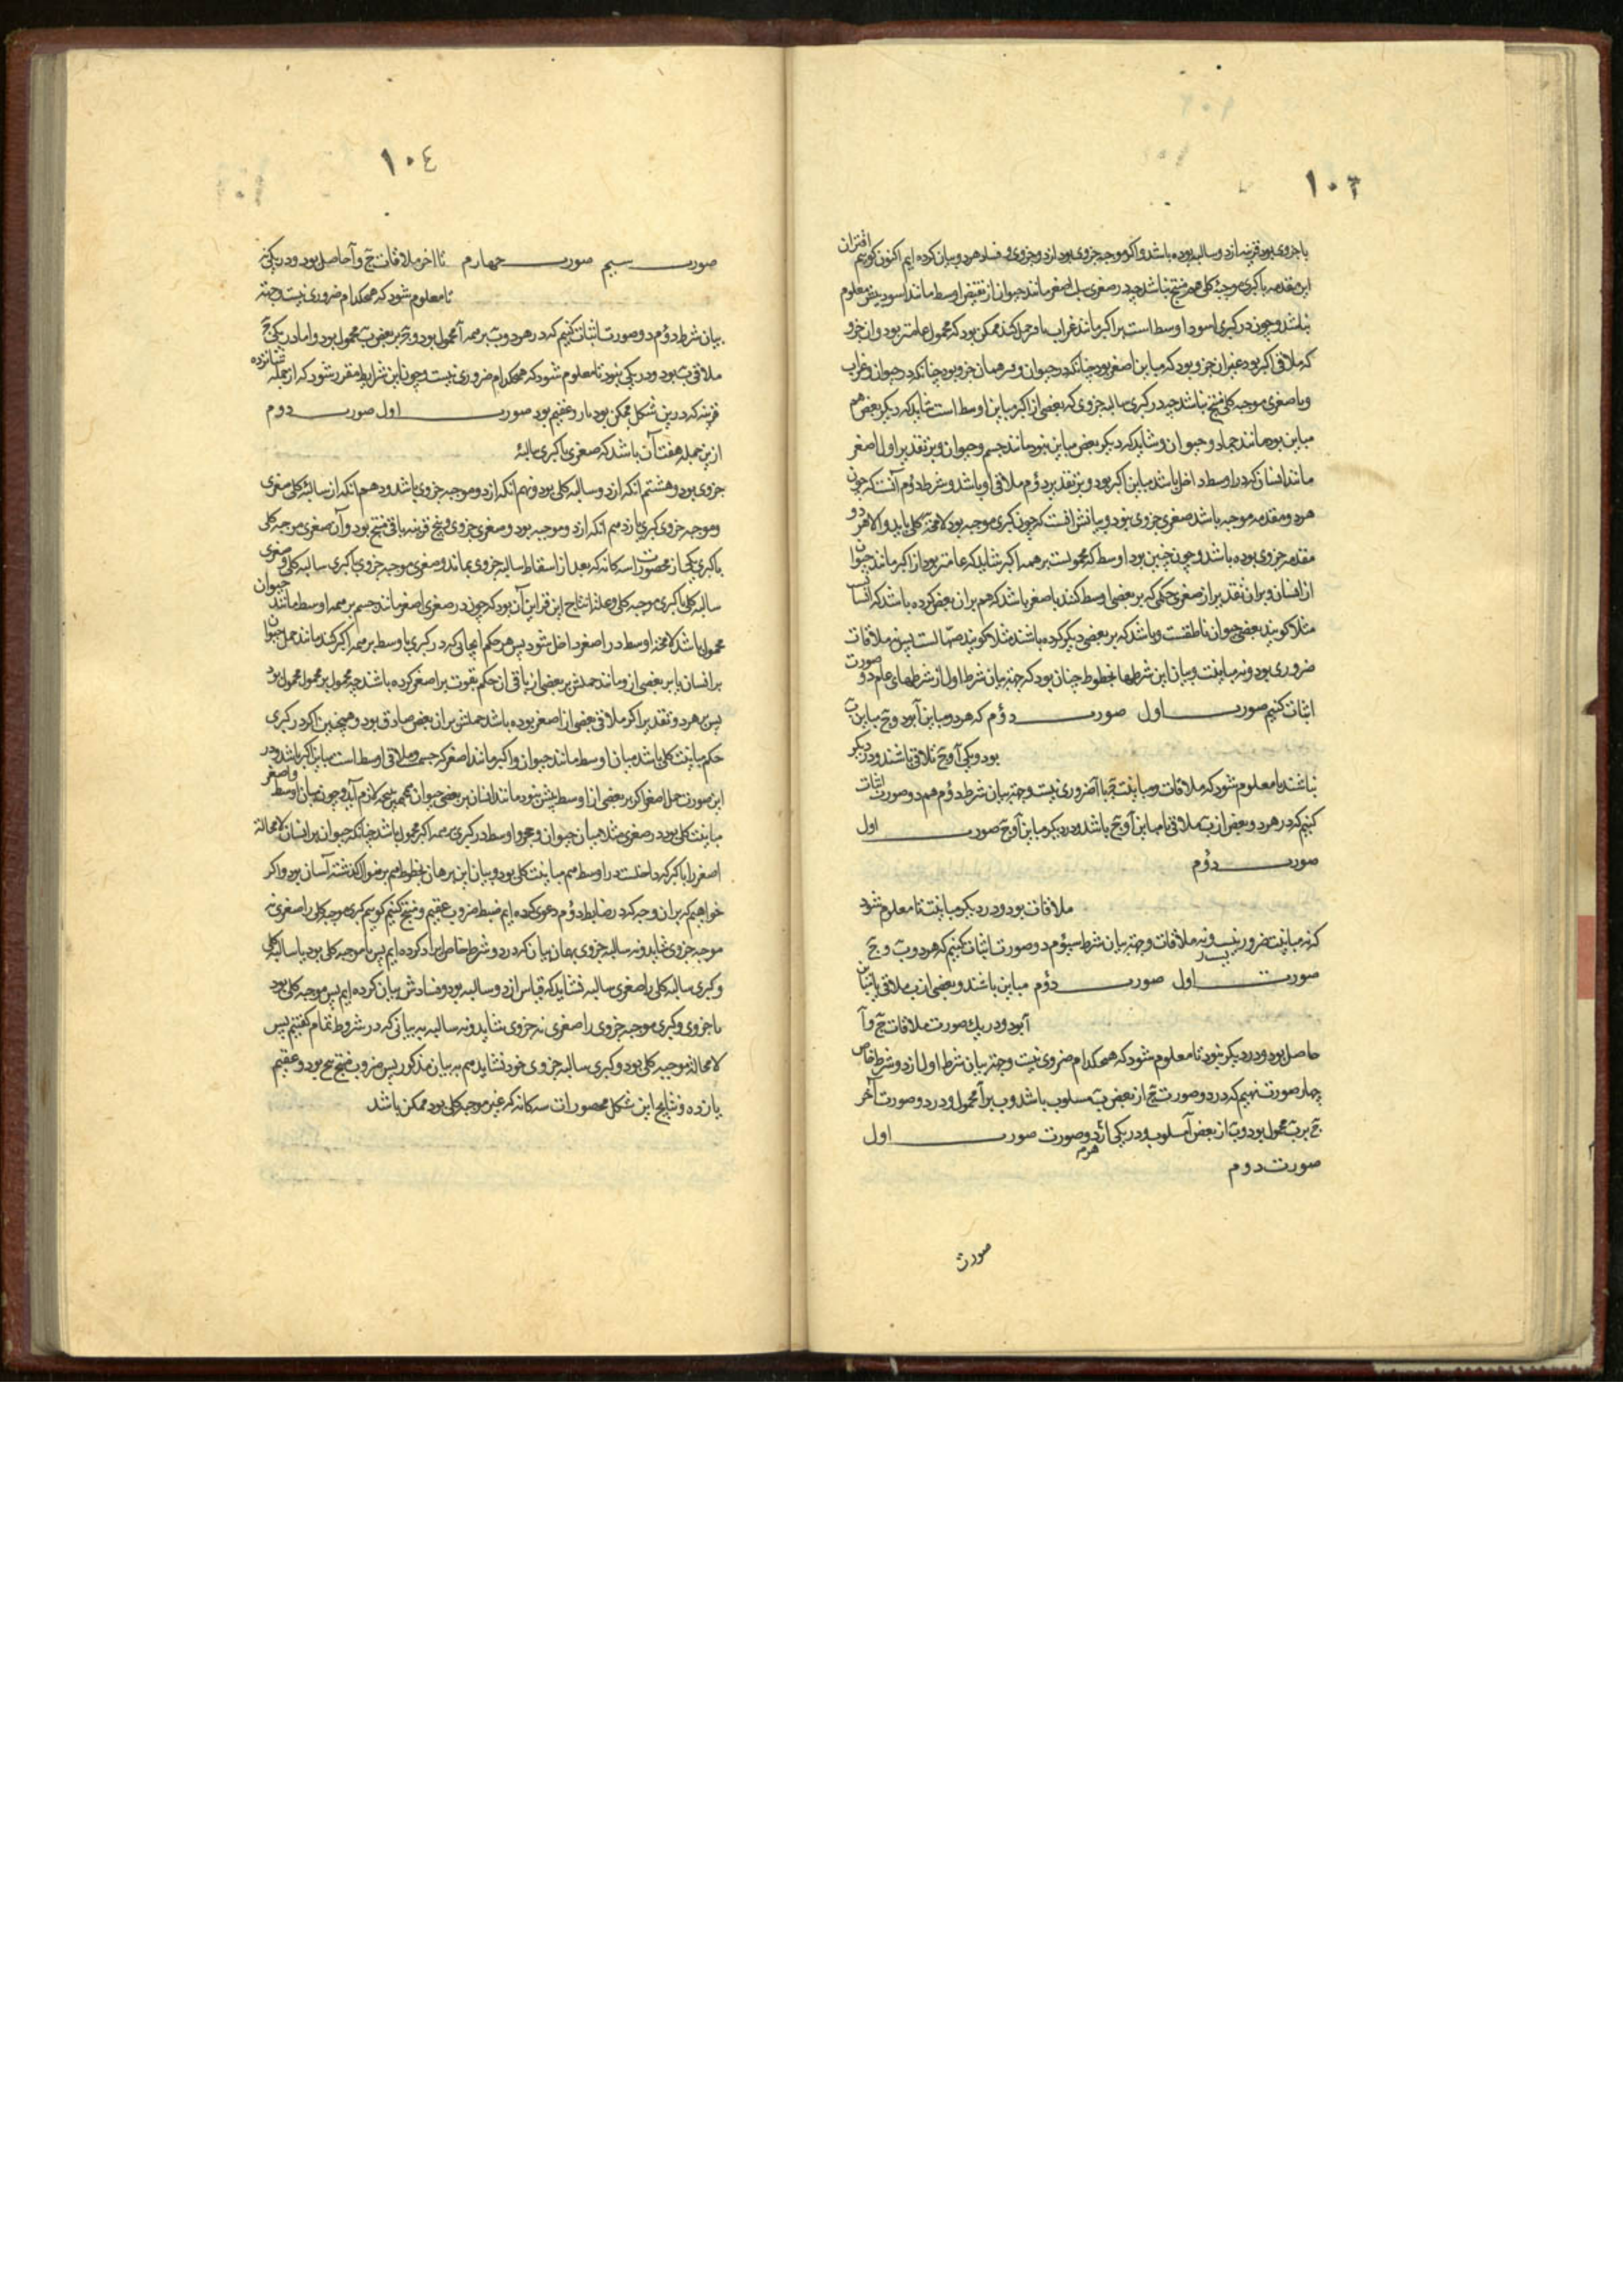 ۱۰۳
یا جزوی بود قرینه از دو سالبه بوده باشد و اگر موجبه جزوی بود از دو جزوی و فساد هر دو بیان کرده ایم اکنون گوییم اقتران
این مقدمه با کبری موجبهٔ کلی هم منتج نباشد چه در صغری سلب اصغر مانند حیوان از بعض اوسط مانند اسود بیش معلوم
نباشد و چون در کبری اسود اوسط است بر اکبر مانند غراب حمل کند ممکن بود که محمول عامتر بود و ان جزو
که ملاقی اکبر بود غیر ان جزو بود که مباین اصغر بود چنانکه در حیوان و همان جزو بود چنانکه در حیوان و غراب
و با صغری موجبه کلی منتج نباشد چه در کبری سالبه جزوی که بعضی از اکبر مباین اوسط است شاید که دیگر بعض هم
مباین بود مانند جماد و حیوان و شاید که دیگر بعض مباین نبود مانند جسم و حیوان و بر تقدیر اول اصغر
مانند انسان که در اوسط داخل باشد مباین اکبر بود و بر تقدیر دؤم ملاقی او باشد و شرط دؤم آنست که چون
هر دو مقدمه موجبه باشد صغری جزوی نبود و بیانش انست که چون کبری موجبه بود لامحاله کلی باید و الا هر دو
مقدمه جزوی بوده باشد و چون چنین بود اوسط که محمولست بر همه اکبر شاید که عامتر بود از اکبر مانند حیوان
از انسان و بران تقدیر از صغری حکمی که بر بعضی اوسط کنند باصغر باشد که هم بران بعض کرده باشد که انسانست
مثلا گویند بعضی حیوان ناطقست و باشد که بر بعضی دیگر کرده باشند مثلا گویند صهالست پس نه ملاقات
ضروری بود و نه مباینت و بیان این شرطها بخطوط چنان بود که جهت بیان شرط اول از شرطهای عام دو صورت
اثبات کنیم صورت اول صورت دؤم که هر دو مباین آ بود و ج مباین ب
بود و یکی آ و ج تلاقی باشند و در دیگر
نباشند تا معلوم شود که ملاقات و مباینت ج با آ ضروری نیست و جهت بیان شرط دؤم هم دو صورت اثبات
کنیم که در هر دو بعض از ب ملاقی یا مباین آ و ج باشد و در دیگر مباین آ و ج صورت اول
صورت دؤم
ملاقات بود و در دیگر مباینت تا معلوم شود
که نه مباینت ضرور نیست و نه ملاقات و جهت بیان شرط سیؤم دو صورت اثبات کنیم که هر دو ب و ج
صورت اول صورت دؤم مباین باشند و بعضی از ب ملاقی یا مباین
آ بود و در یک صورت ملاقات ج و آ
حاصل بود و در دیگر نبود تا معلوم شود که هیچکدام ضروری نیست و جهت بیان شرط اول از دو شرط خاص
چهار صورت نهیم که در دو صورت ج از بعض ب مسلوب باشد و ب بر آ محمول و در دو صورت آخر
ج بر ب محمول بود و ب از بعض آ مسلوب و در یکی از هر دو صورت صورت اول
صورت دوم
صورت
۱۰٤
صورت سیم صورت چهارم تا آخر ملاقات ج و آ حاصل بود و در یکی نه
تا معلوم شود که هیچکدام ضروری نیست و جهت
بیان شرط دؤم دو صورت اثبات کنیم که در هر دو ب بر همه آ محمول بود و ج بر بعض ب محمول بود و اما در یکی ج
ملاقی ب بود و در یکی نبود تا معلوم شود که هیچکدام ضروری نیست و چون این شرایط مقرر شود که از جمله شانزده
قرینه که درین شکل ممکن بود یازده عقیم بود صورت اول صورت دوم
ازین جمله هفت آن باشد که صغری یا کبری سالبهٔ
جزوی بود و هشتم انکه از دو سالبه کلی بود و نهم انکه از دو موجبه جزوی باشد و دهم انکه از سالبهٔ کلی صغری
و موجبه جزوی کبری یازدهم انکه از دو موجبه بود و صغری جزوی و پنج قرینه باقی منتج بود و آن صغری موجبه کلی
با کبری یکی از محصورات سه گانه که بعد از اسقاط سالبه جزوی بماند و صغری موجبه جزوی با کبری سالبه کلی و صغری
سالبه کلی با کبری موجبه کلی و علت انتاج این قراین آن بود که چون در صغری اصغر مانند جسم بر همه اوسط مانند حیوان
محمول باشد لامحاله اوسط در اصغر داخل شود پس هر حکم ایجابی که در کبری با وسط بر همه اکبر کند مانند حمل حیوان
بر انسان یا بر بعضی از و مانند حملش بر بعضی از باقی ان حکم بقوت بر اصغر کرده باشند چه محمول بر محمول محمول بود
پس بر هر دو تقدیر اکبر ملاقی بعضی از اصغر بوده باشد حملش بر ان بعض صادق بود و همچنین اگر در کبری
حکم مباینت کلی باشد میان اوسط مانند حیوان و اکبر مانند اصغر که جسمست و ملاقی اوسط است مباین اکبر باشد و در
این صورت حمل اصغر اگر بر بعضی از اوسط بیش نبود مانند انسان بر بعضی حیوان همچنین نتیجه لازم آید و چون میان اوسط و اصغر
مباینت کلی بود در صغری مثلا میان حیوان و حجر و اوسط در کبری بر همه اکبر محمول باشد چنانکه حیوان بر انسان لامحاله
اصغر را با اکبر که داخلست در اوسط هم مباینت کلی بود و بیان این برهان بخطوط هم بر منوال گذشته آسان بود و اگر
خواهیم که بران وجه که در ضابط دؤم دعوی کرده ایم ضبط ضروب عقیم و منتج کنیم گوییم کبری موجبه کلی را صغری نه
موجبه جزوی شاید و نه سالبه جزوی بهمان بیان که در دو شرط خاص ایراد کرده ایم پس یا موجبه کلی بود یا سالبه کلی
و کبری سالبه کلی را صغری سالبه نشاید که قیاس از دو سالبه بود و فسادش بیان کرده ایم پس موجبه کلی بود
یا جزوی و کبری موجبه جزوی را صغری نه جزوی شاید و نه سالبه به بیانی که در شروط تمام گفتیم پس
لامحاله موجبه کلی بود و کبری سالبه جزوی خود نشاید هم به بیان مذکور پس ضروب منتج پنج بود و عقیم
یازده و نتایج این شکل محصورات سه گانه که غیر موجبه کلی بود ممکن باشد